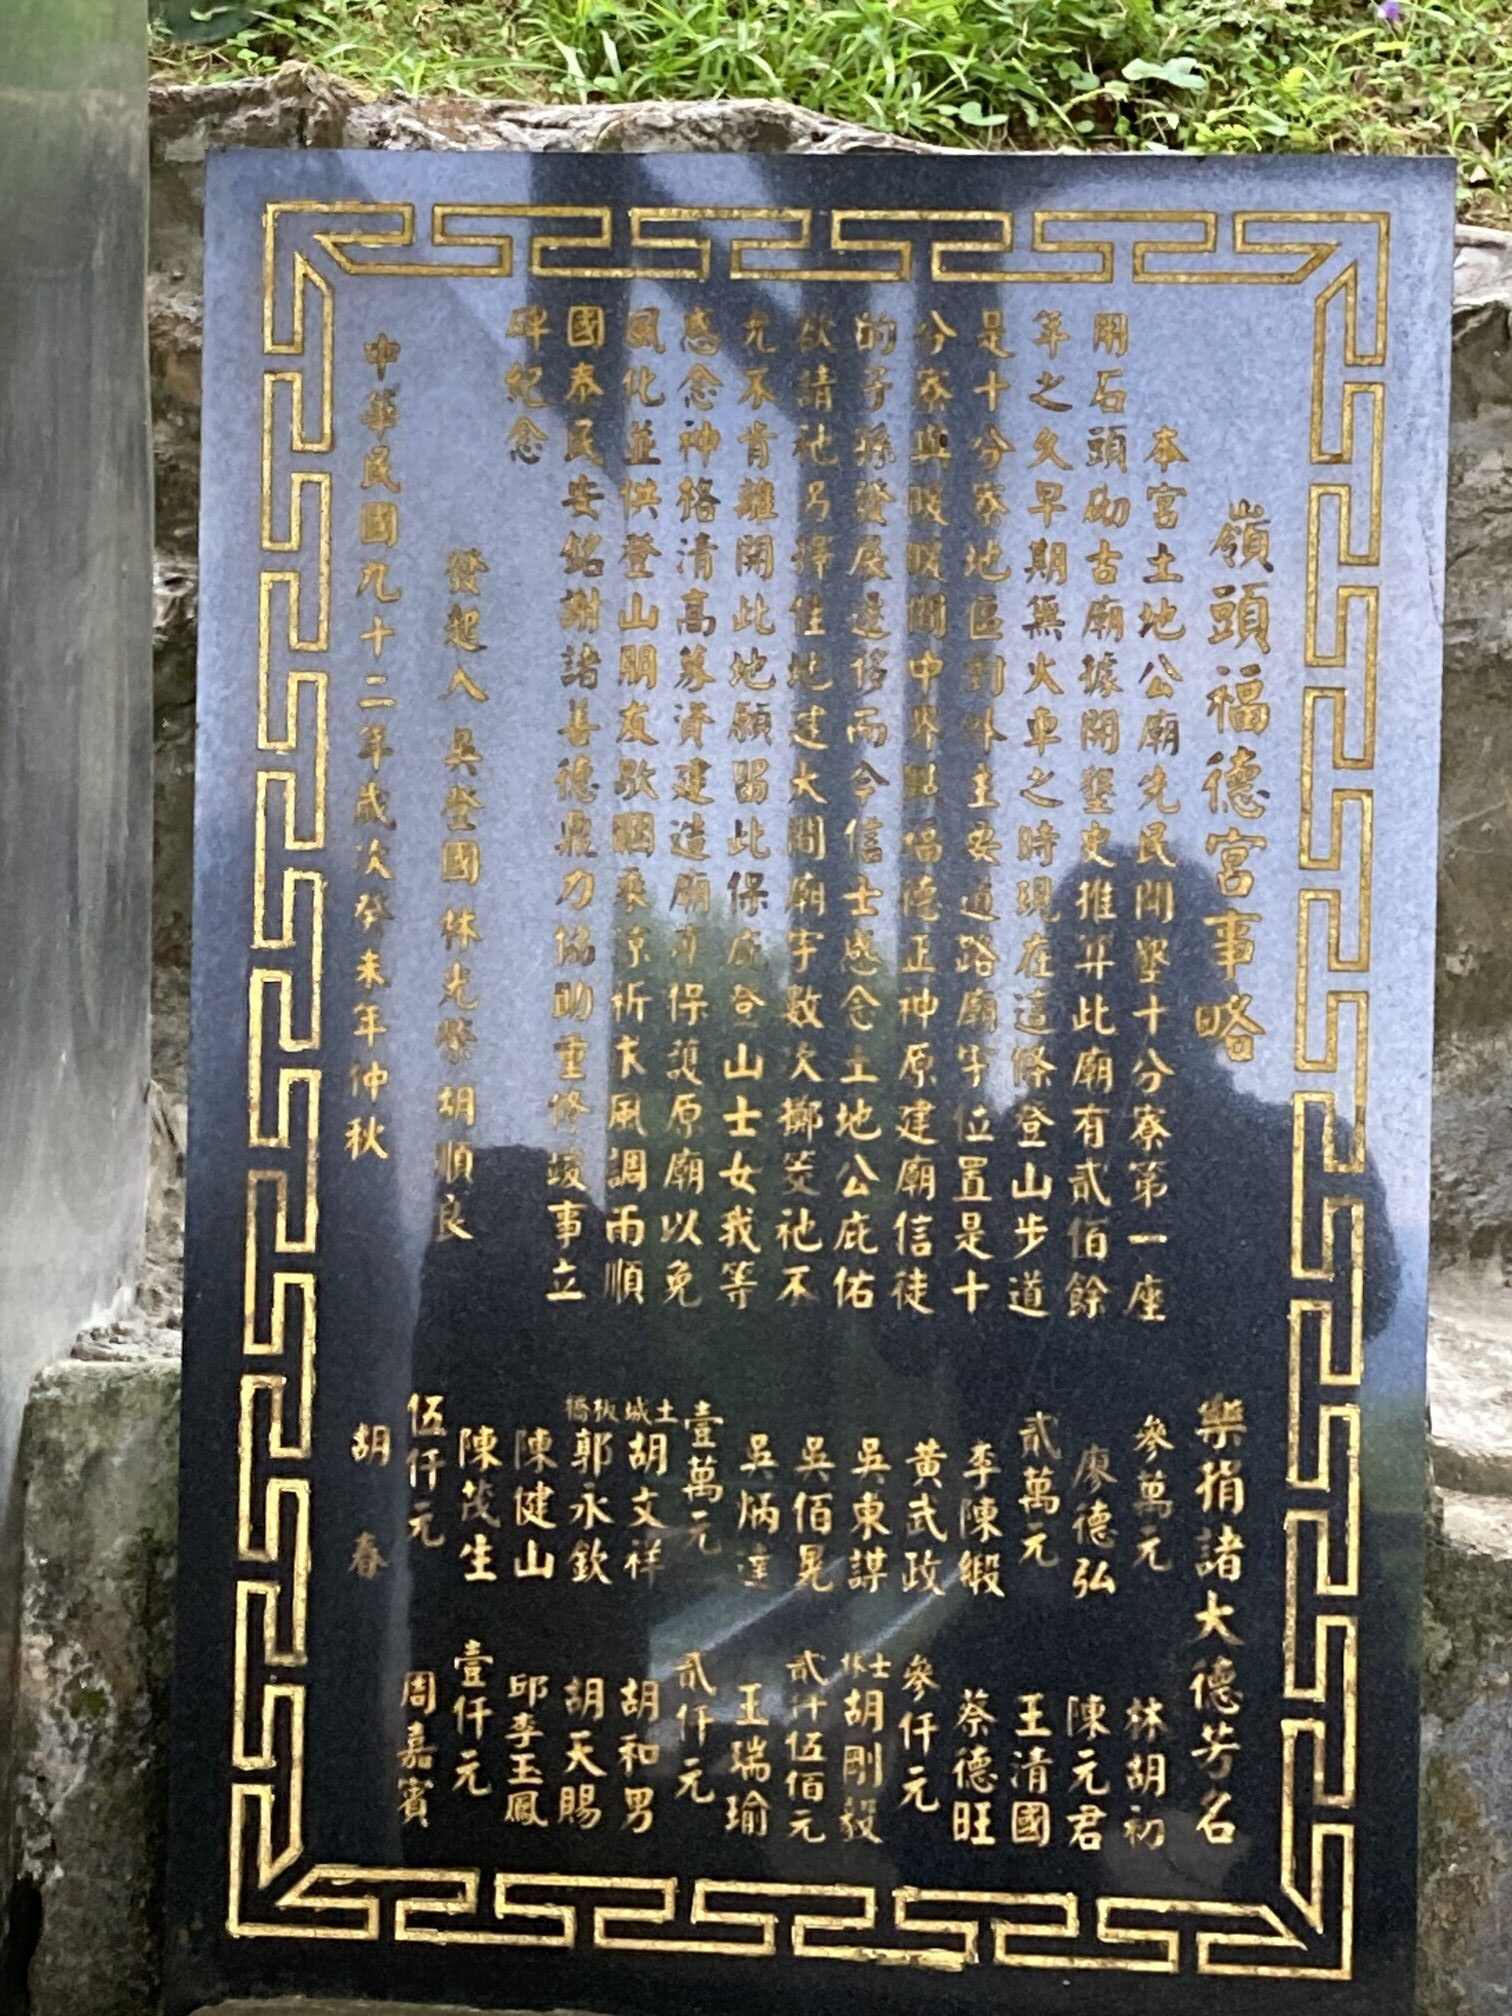 嶺頭福德宮事略
本宮土地公廟先民開墾十分寮第一座
用石頭砌古廟據開墾史推算此廟有貳佰餘
年之久早期無火車之時現在這條登山步道
是十分寮地區對外主要道路廟宇位置是十
分寮與暖暖間中界點福德正神原建廟信徒
的子孫發展達侈而今信士感念土地公庇佑
欲請祂另擇佳地建大間廟宇數次擲筊祂不
允不肯離開此地願留此保庇登山士女我等
感念神格清高募資建造廟亭保護原廟以免
風化並供登山朋友歇睏乘涼祈求風調雨順
國泰民安銘謝諸善德鼎力協助重修竣事立
碑紀念
發起人吳登國林光榮胡順良
中華民國九十二年歲次癸未年仲秋
樂捐諸大德芳名
參萬元
廖德弘
貳萬元
李陳緞
黃武政
吳東謀
吳佰晃
吳炳達
壹萬元
土城
胡文祥
板橋
郭永欽
陳健山
陳茂生
伍仟元
胡春
林胡初
陳元君
王清國
蔡德旺
參仟元
士林
胡剛毅
貳仟伍佰元
王瑞瑜
貳仟元
胡和男
胡天賜
邱李玉鳳
壹仟元
周嘉賓